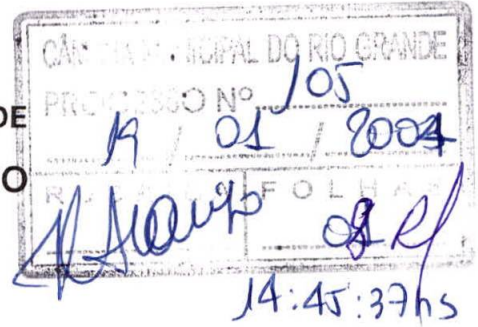 CÂMARA MUNICIPAL DO RIO GRANDE
PROCESSO Nº 105
DE
19 / 01 / 2004
O
FOLHAS
14:45:37hs